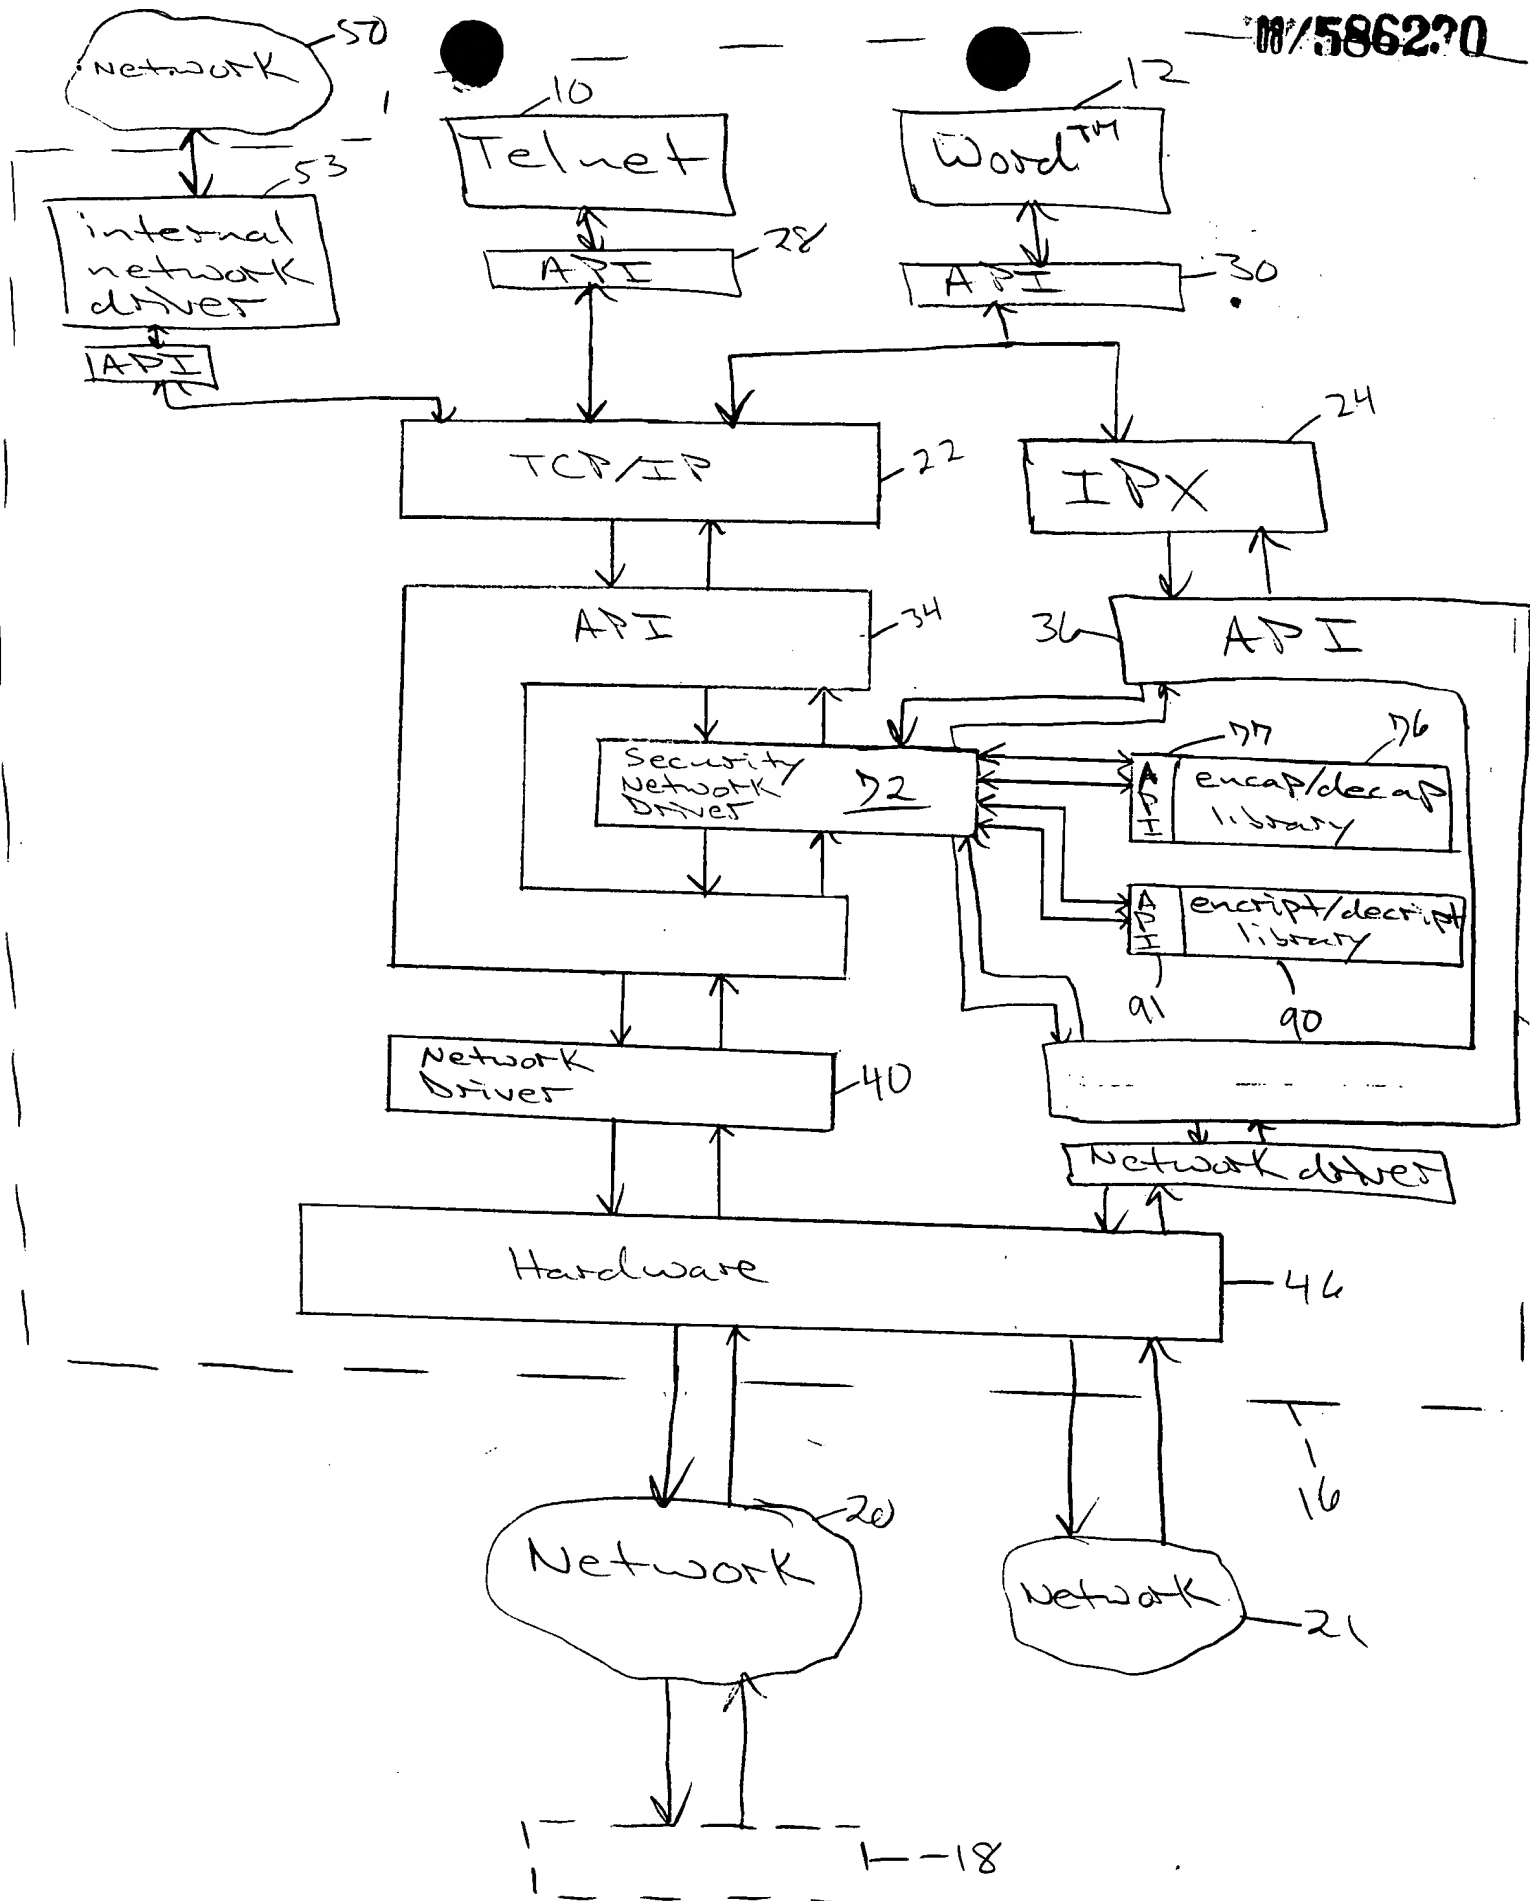 50
Network
10
12
Telnet
Word™
53
internal
network
driver
API
28
API
30
API
24
TCP/IP
22
IPX
API
34
36
API
77
76
Security
Network
Driver
72
API
encap/decap
library
API
encript/decript
library
91
90
Network
Driver
40
Network driver
Hardware
46
16
Network
20
Network
21
18